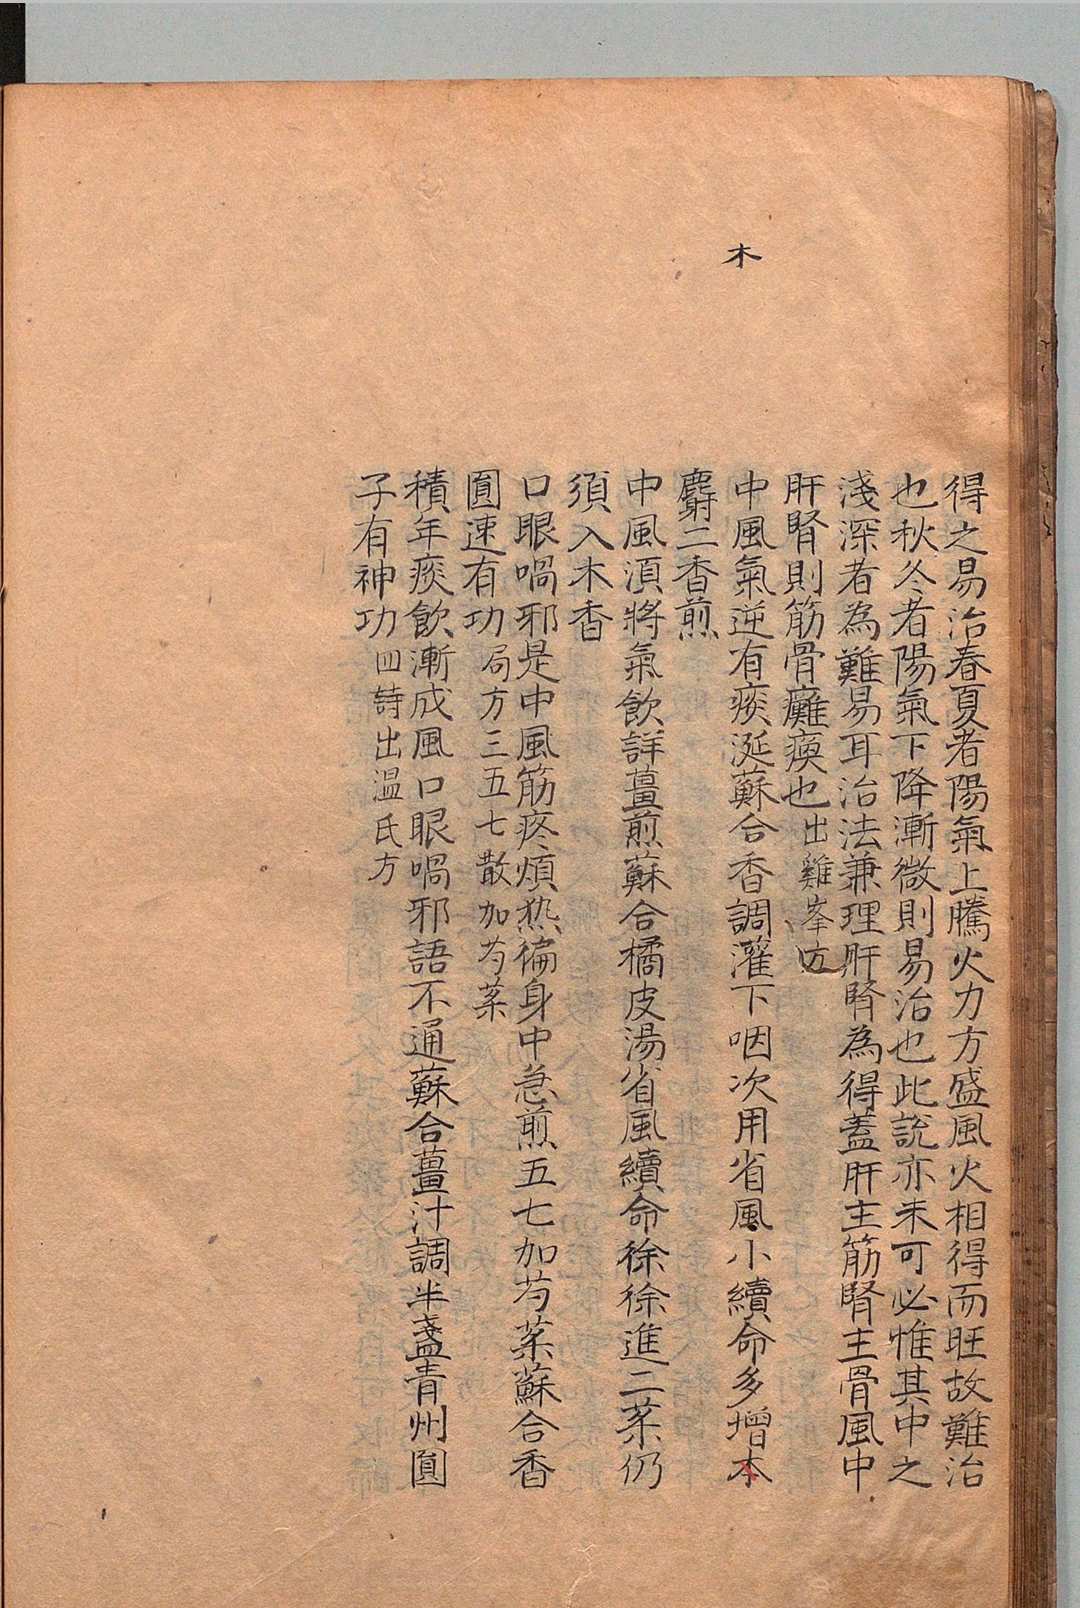 木
得之易治春夏者陽氣上騰火力方盛風火相得而旺故難治
也秋冬者陽氣下降漸微則易治也此說亦未可必惟其中之
淺深者為難易耳治法兼理肝腎為得蓋肝主筋腎主骨風中
肝腎則筋骨癱瘓也出雞峯方
中風氣逆有痰涎蘇合香調灌下咽次用省風小續命多增本
麝二香煎
中風湏將氣飲詳薑煎蘇合橘皮湯省風續命徐徐進二藥仍
須入木香
口眼喎邪是中風筋疼煩熱徧身中急煎五七加芍藥蘇合香
圓速有功局方三五七散加芍藥
積年痰飲漸成風口眼喎邪語不通蘇合薑汁調半盞青州圓
子有神功四詩出溫氏方